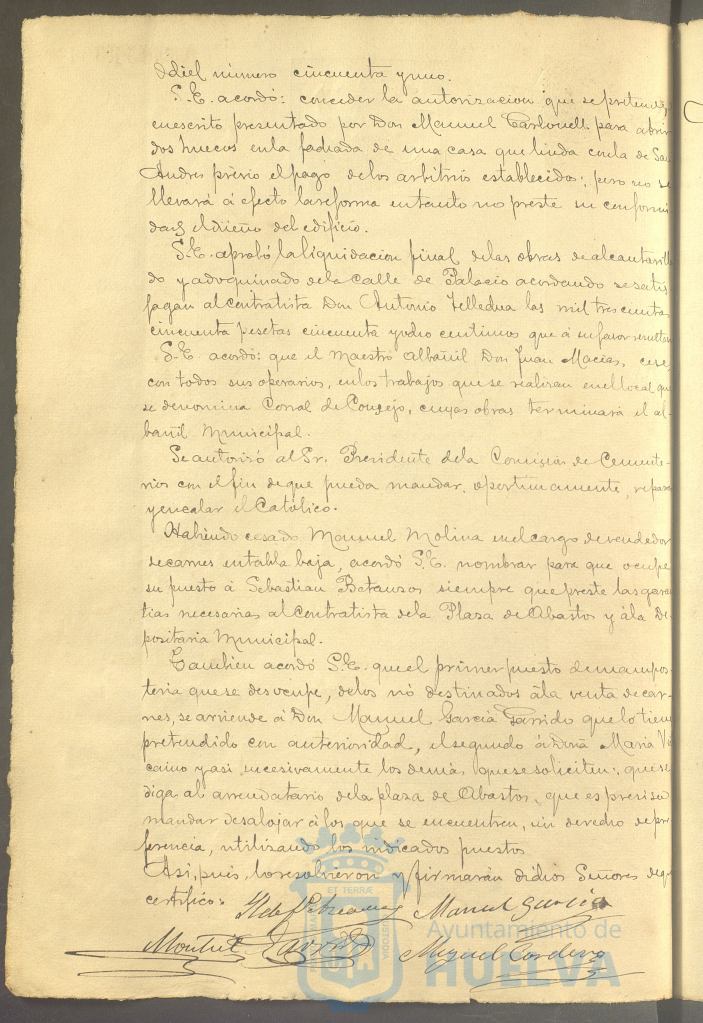 Odiel número cincuenta y uno.
S.E. acordó: conceder la autorizacion que se pretende,
en escrito presentado por Don Manuel Carbonell para abrir
dos huecos en la fachada de una casa que linda con la de San
Andres prévio el pago de los arbitrios establecidos; pero no se
llevará á efecto la reforma en tanto no preste su conformi
dad el dueño del edificio.
S.E. aprobó la liquidacion final de las obras de alcantarilla
do y adoquinado de la calle de Palacio acordando se satis
fagan al contratista Don Antonio las mil trescientas
cincuenta pesetas cincuenta y ocho centimos que á su favor resultan
S.E. acordó: que el maestro albañil Don Juan Macías, cese
con todos sus operarios, en los trabajos que se realizan en el local que
se denomina Corral de Concejo, cuyas obras terminará el al-
bañil Municipal.
Se autorizó al Sr. Presidente de la Comision de Cemente-
rios con el fin de que pueda mandar, oportunamente, repara
y encalar el Católico.
Habiendo cesado Manuel Molina en el cargo de vendedor
de carnes en tabla baja, acordó S.E. nombrar para que ocupe
su puesto á Sebastian Betanzos siempre que preste las garan
tias necesarias al contratista de la Plaza de Abastos y á la De
positaria Municipal.
Tambien acordó S.E. que el primer puesto de mampos
teria que se desocupe, de los nó destinados á la venta de car-
nes, se arriende á Don Manuel García Garrido que lo tiene
pretendido con anterioridad, el segundo á Doña María Viz
caino y asi sucesivamente los demás que se soliciten; que se
diga al arrendatario de la plaza de Abastos, que es preciso
mandar desalojar á los que se encuentren, sin derecho de pre
ferencia, utilizando los indicados puestos
Asi, pues, lo resolvieron y firmarán dichos Señores de que
certifico:
Manuel García
Garrido
Miguel Cordero
Ayuntamiento de
HUELVA